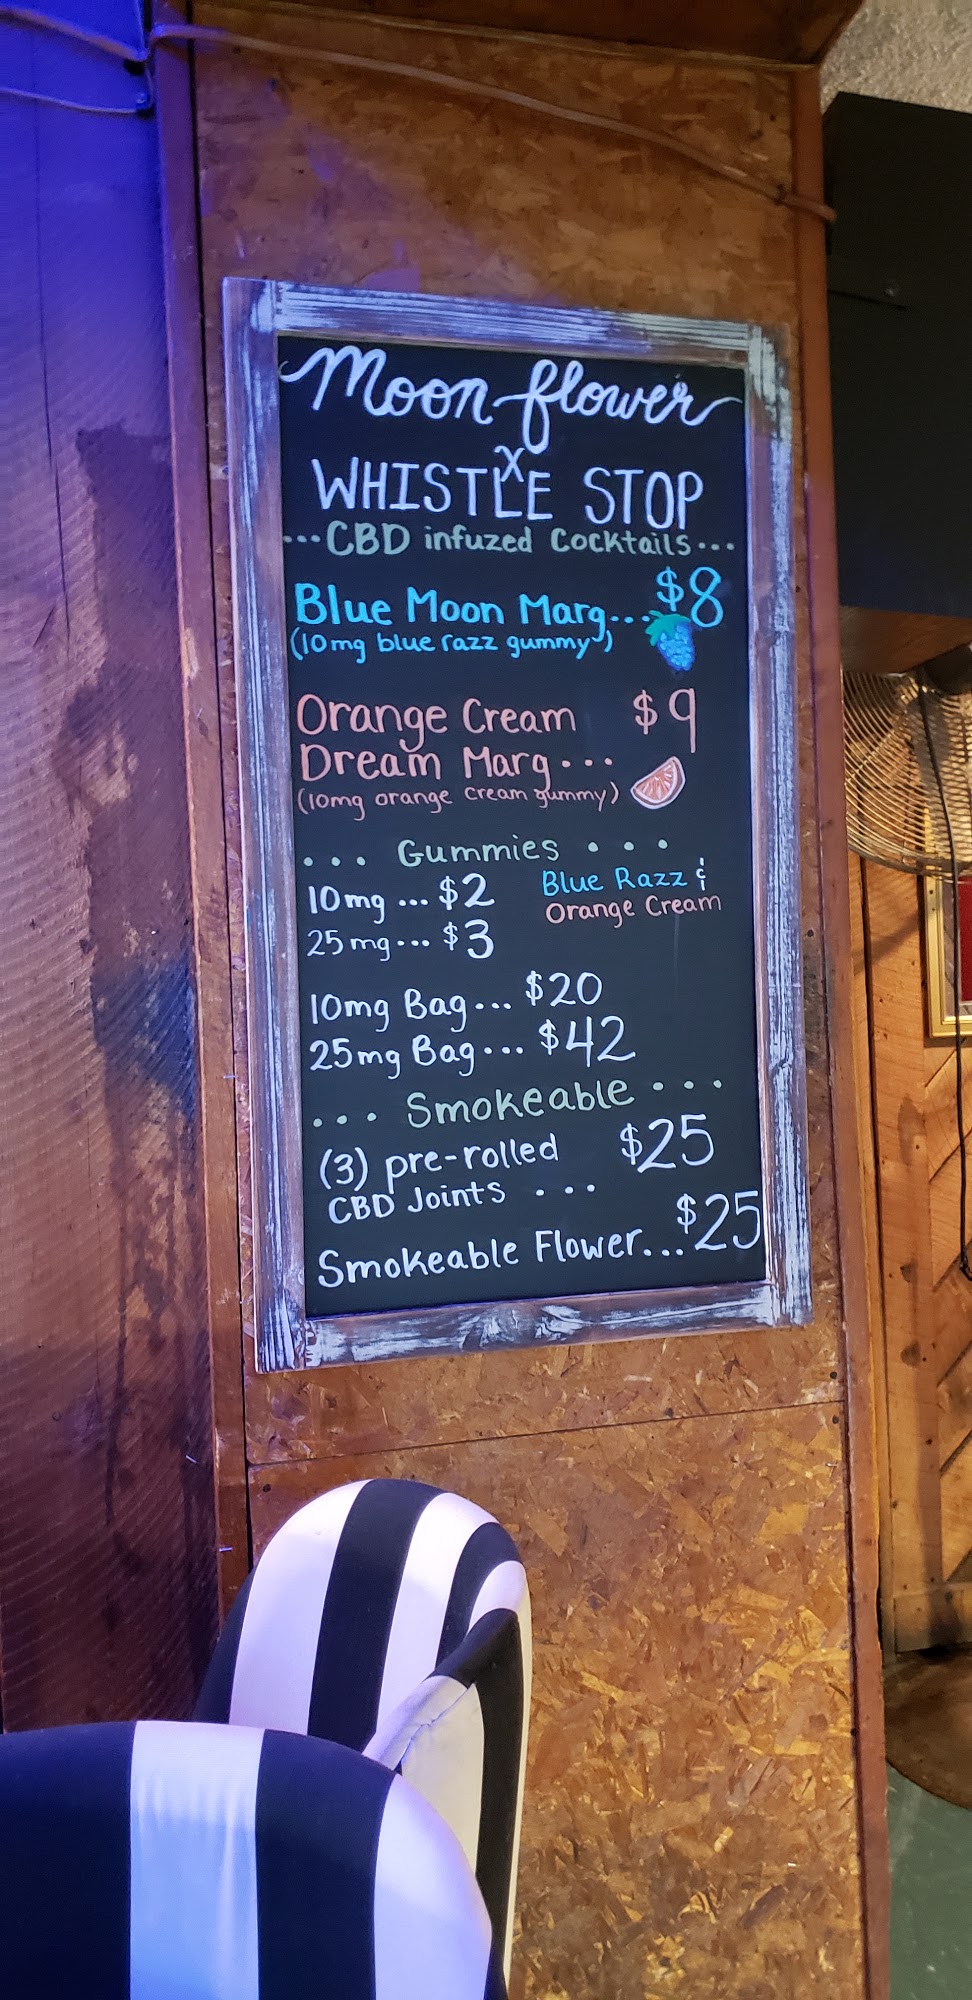 Moonflower
x
WHISTLE STOP
...CBD infuzed Cocktails...
Blue Moon Marg...$8
(10mg blue razz gummy)
Orange Cream $9
Dream Marg...
(10mg orange cream gummy)
... Gummies ...
10mg ... $2 Blue Razz &
25mg... $3 Orange Cream
10mg Bag... $20
25mg Bag... $42
... Smokeable ...
(3) pre-rolled $25
CBD Joints ...
Smokeable Flower... $25